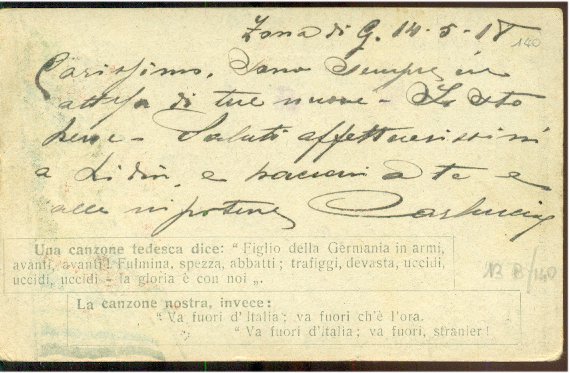 Zona di G. 14-5-18
140
Carissimo, Sono sempre in
attesa di tue nuove - Io sto
bene - Saluti affettuosissimi
a Lidia, e bacioni a te e
alle nipotine
Una canzone tedesca dice: " Figlio della Germania in armi,
avanti, avanti! Fulmina, spezza, abbatti; trafiggi, devasta, uccidi,
uccidi, uccidi - la gloria è con noi „.
La canzone nostra, invece:
" Va fuori d'Italia; va fuori ch'è l'ora.
" Va fuori d'Italia; va fuori, stranier!